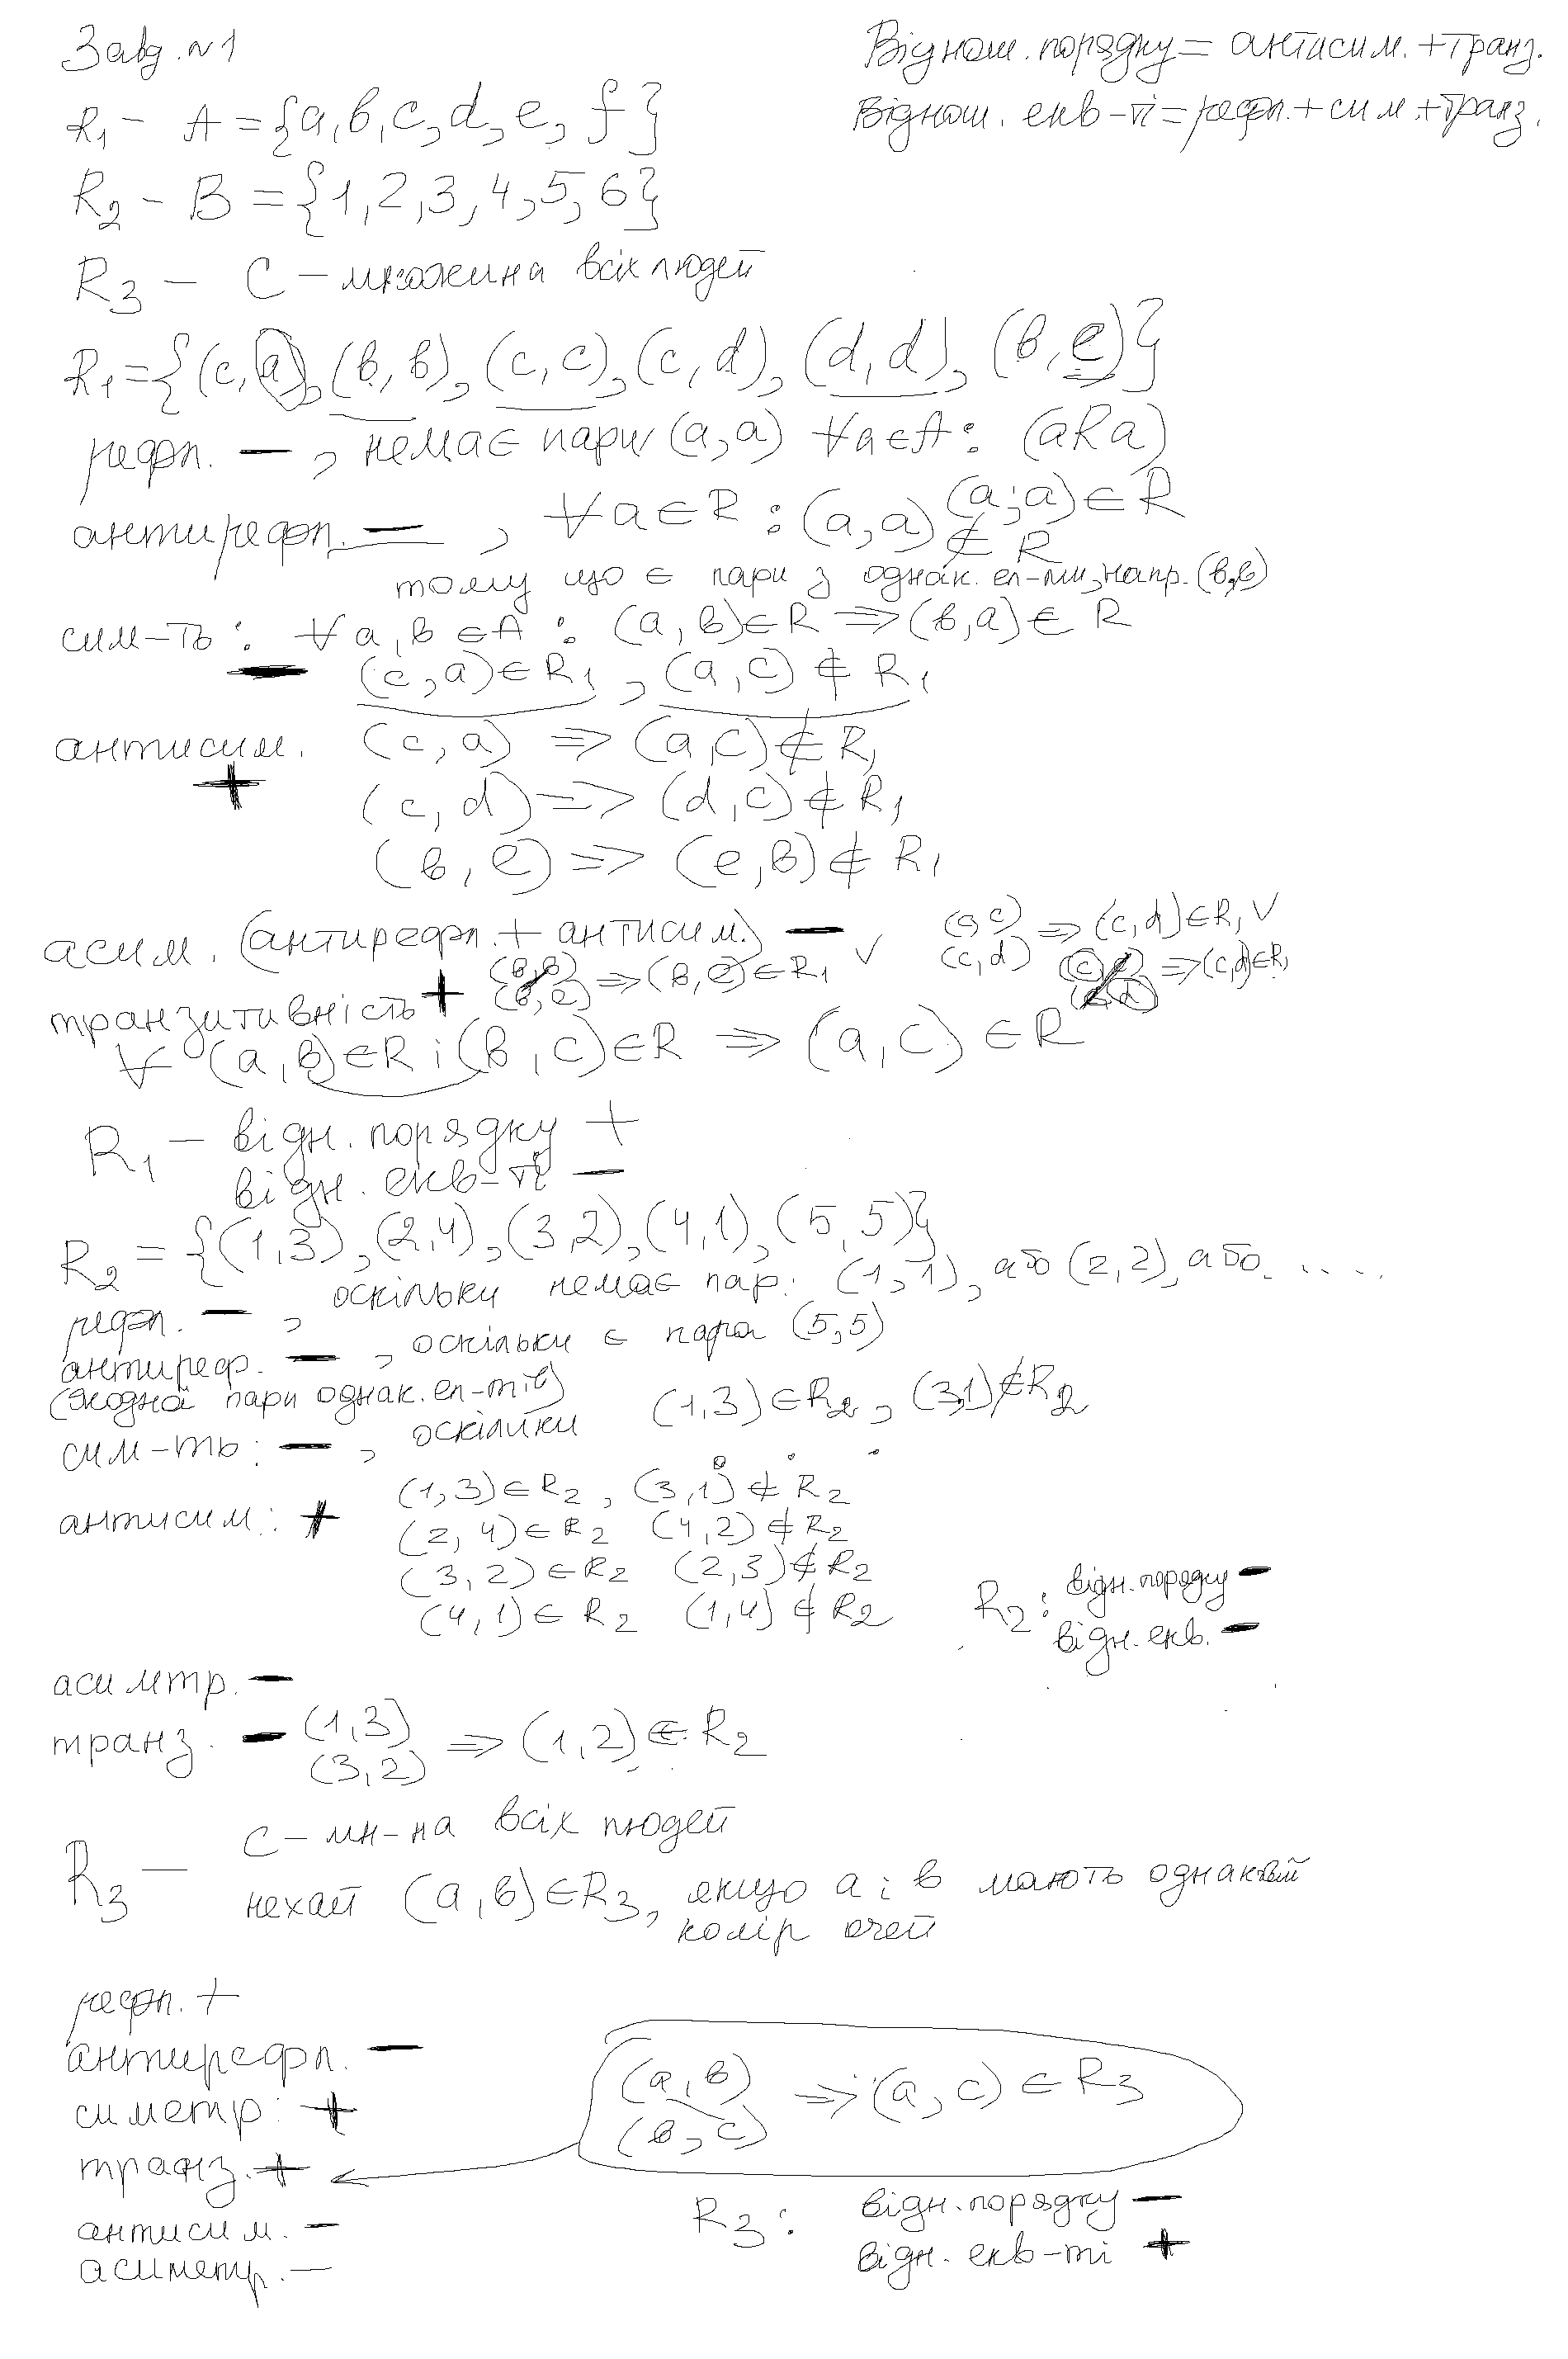 Завд. №1
Віднош. порядку = антисим. + транз.
Віднош. екв-ті = рефл. + сим. + транз.
R₁ − A = {a, b, c, d, e, f}
R₂ − B = {1, 2, 3, 4, 5, 6}
R₃ − C − множина всіх людей
R₁ = {(c, a), (b, b), (c, c), (c, d), (d, d), (b, e)}
рефл. −, немає пари (a, a) ∀a∈A: (aRa)
(a; a) ∈ R
антирефл. −, ∀a∈R: (a, a) ∉ R
тому що є пари з однак. ел-ми, напр. (b, b)
сим-ть: ∀a, b ∈ A: (a, b)∈R ⇒ (b, a) ∈ R
− (c, a) ∈ R₁, (a, c) ∉ R₁
антисим. (c, a) ⇒ (a, c) ∉ R₁
+ (c, d) ⇒ (d, c) ∉ R₁
(b, e) ⇒ (e, b) ∉ R₁
асим. (антирефл. + антисим.) −
транзитивність + (b, b) (b, e) ⇒ (b, e) ∈ R₁ ∨
(c, c) (c, d) ⇒ (c, d) ∈ R₁ ∨
⇒ (c, d) ∈ R₁
∀ (a, b)∈R і (b, c)∈R ⇒ (a, c) ∈ R
R₁ − відн. порядку +
відн. екв-ті −
R₂ = {(1, 3), (2, 4), (3, 2), (4, 1), (5, 5)}
рефл. −, оскільки немає пар: (1, 1), або (2, 2), або .....
антиреф. −, оскільки є пара (5, 5)
(жодної пари однак. ел-тів)
сим-ть: −, оскільки (1, 3) ∈ R₂, (3, 1) ∉ R₂
антисим: + (1, 3) ∈ R₂, (3, 1) ∉ R₂
(2, 4) ∈ R₂ (4, 2) ∉ R₂
(3, 2) ∈ R₂ (2, 3) ∉ R₂
(4, 1) ∈ R₂ (1, 4) ∉ R₂
R₂: відн. порядку −
відн. екв. −
асиметр. −
транз. − (1, 3) (3, 2) ⇒ (1, 2) ∈ R₂
R₃ − C − мн-на всіх людей
нехай (a, b) ∈ R₃, якщо a і b мають однаковий
колір очей
рефл. +
антирефл. −
симетр: +
транз. +
(a, b) (b, c) ⇒ (a, c) ∈ R₃
антисим. −
асиметр. −
R₃: відн. порядку −
відн. екв-ті +